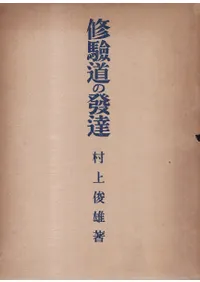 修驗道の發達
村上俊雄著